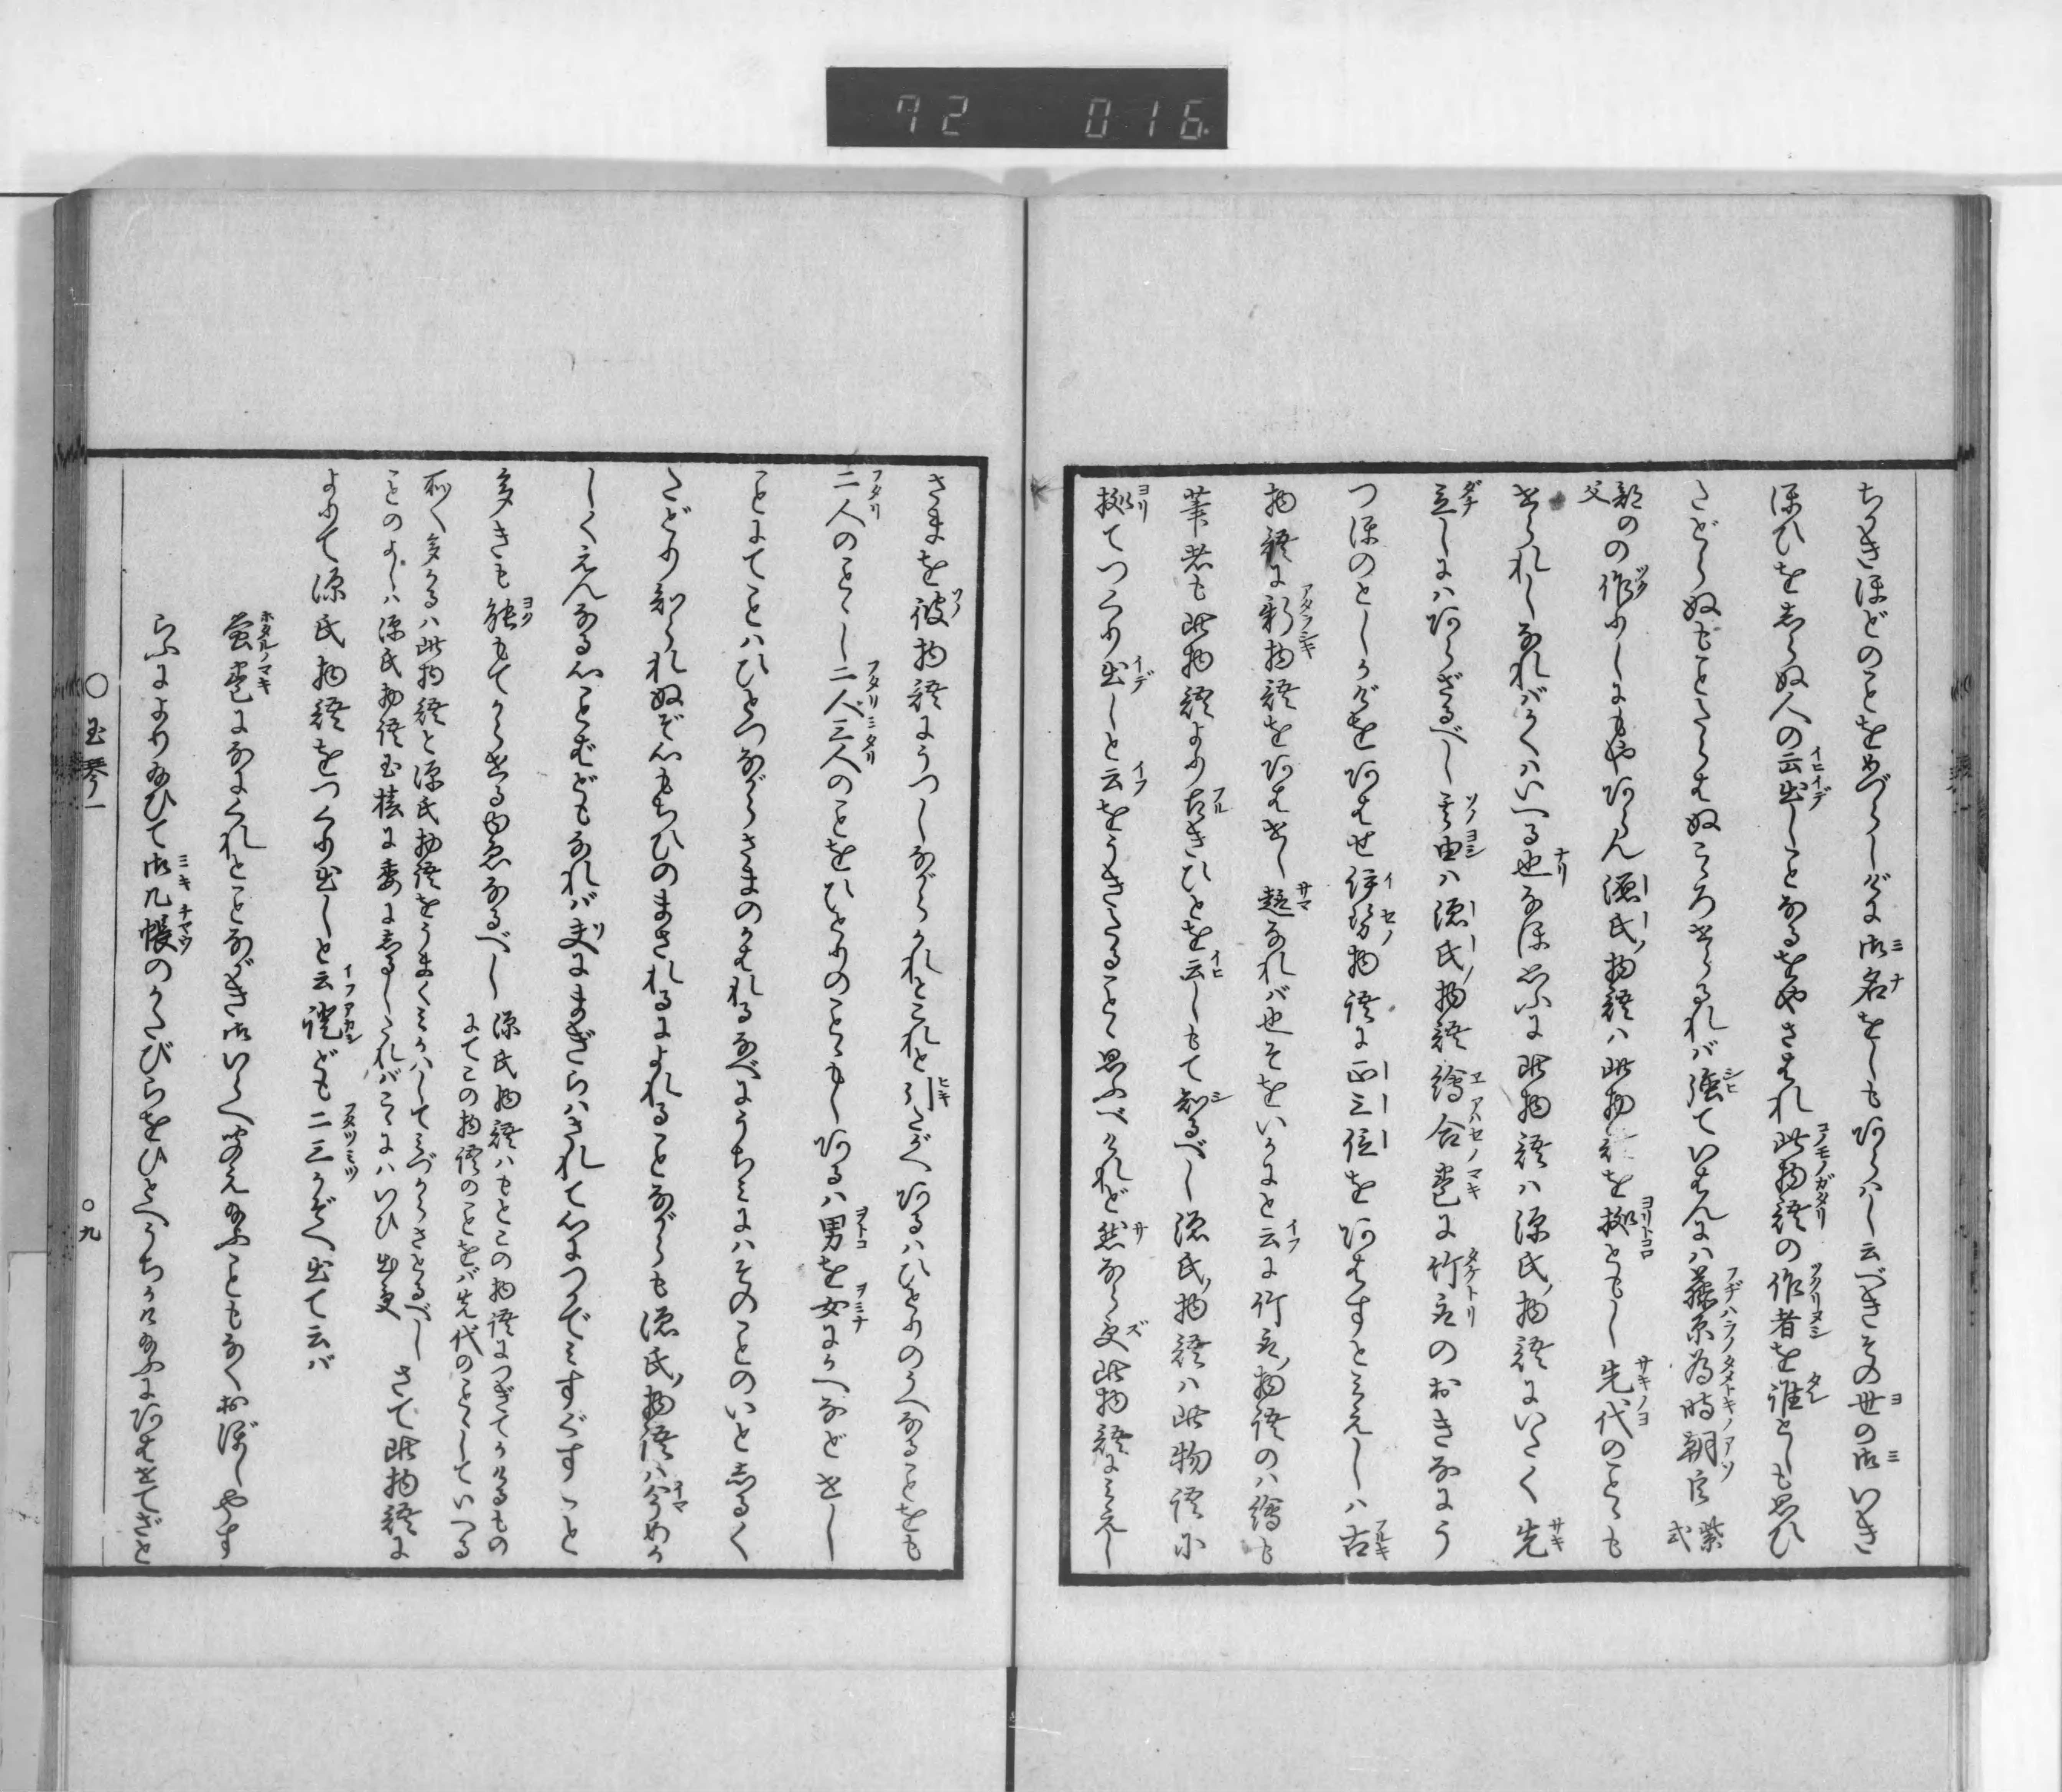 72 016
ちかきほどのことをめづらしげに御名をしもあらはし云べきその世の御いき
ほひをしらぬ人の云出しことなるをやさはれ此物語の作者を誰としも思ひ
さだめぬもことたらはぬこゝろせらるれば強ていはんには藤原為時朝臣紫式
部の父の作りしにもやあらん源氏物語は此物語を拠ともし先代のことゝも
せられしなればかくはいへる也なほ思ふに此物語は源氏物語にいたく先
立しにはあらざるべし其由は源氏物語繪合巻に竹取のおきなにう
つほのとしかげをあはせ伊勢物語に正三位をあはすとみえしは古
物語に新物語をあはせし趣なれば也そをいかにと云に竹取物語のは繪も
筆者も此物語より古きひとを云しもて知るべし源氏物語は此物語に
拠てつくり出しと云をうきたることゝ思ふべけれど然あらず此物語にみえし
さまを彼物語にうつしながらかれとこれと引たがへあるはひとりのうへなることをも
二人のことゝし二人三人のことをひとりのことゝもしあるは男を女にかへなどせし
ことにてことはひとつながらさまのかはれるなべにうちみにはそのことのいとしるく
さだか知られぬぞ心もちひのまされるによれることながらも源氏物語は今めか
しくえんなる心ことばどもなれば夫にまぎらはされて心につかでみすぐすこと
多きも能もてかくせる故なるべし源氏物語はもとこの物語につぎてかけるもの
にてこの物語のことをば先代のことゝしていへる
多かるは此物語と源氏物語をうまくみかはしてみづからさとるべし
ことのよしは源氏物語玉椿に委にしるしたればこゝにはいひ出ずさて此物語に
よりて源氏物語をつくり出しと云證ども二三かぞへ出て云ば
螢巻になにくれとことながき御いらへ聞え給ふこともなくおぼしやす
らふによりたまひて御几帳のかたびらをひとへうちかけ給ふにあはせてさと
○玉琴一 ○九